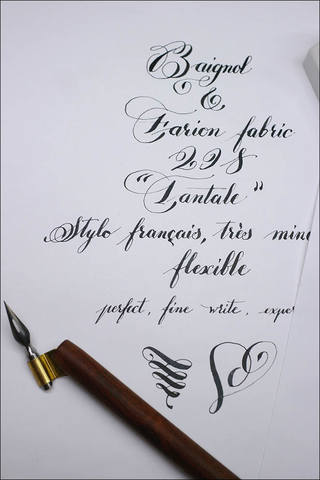 Baignol
&
Farion fabric
298
“Tantale”
Stylo français, très minc
flexible
perfect, fine write, expe